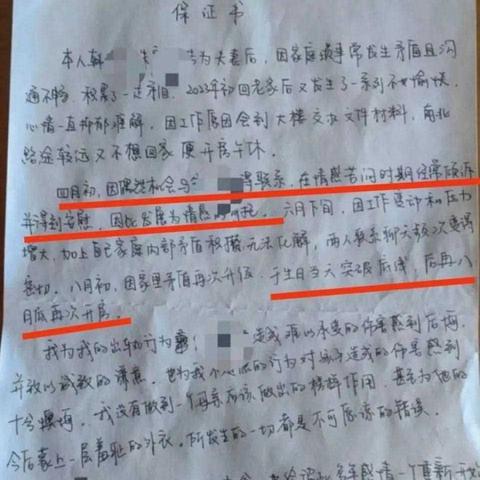 保证书
本人韩 与 结为夫妻后，因家庭琐事常发生矛盾且沟
通不畅，积累了一定矛盾。2023年初回老家后又发生了一系列不愉快，
心情一直抑郁难解，因工作原因会到大楼交汝文件材料，南北
路途较远又不想回家便开房午休。
四月初，因偶然机会与 得联系，在情感苦闷时期经常倾诉
并得到安慰，因此发展为情感 六月下旬，因工作变动和压力
增大，加上自己家庭内部矛盾积攒无法化解，两人联系聊天频次变得
甚切。八月初，因家里矛盾再次升级，于生日当天突破底线，后再八
月底再次开房。
我为我的出轨行为 造成难以承受的伤害感到后悔，
并致以诚挚的 也为我 的行为对 造成的伤害感到
十分懊悔，我没有做到一个母亲应该做出的榜样作用，甚至为他的
今后蒙上一层羞耻的外衣。所发生的一切都是不可原谅的错误。
多年感情一个重新开始